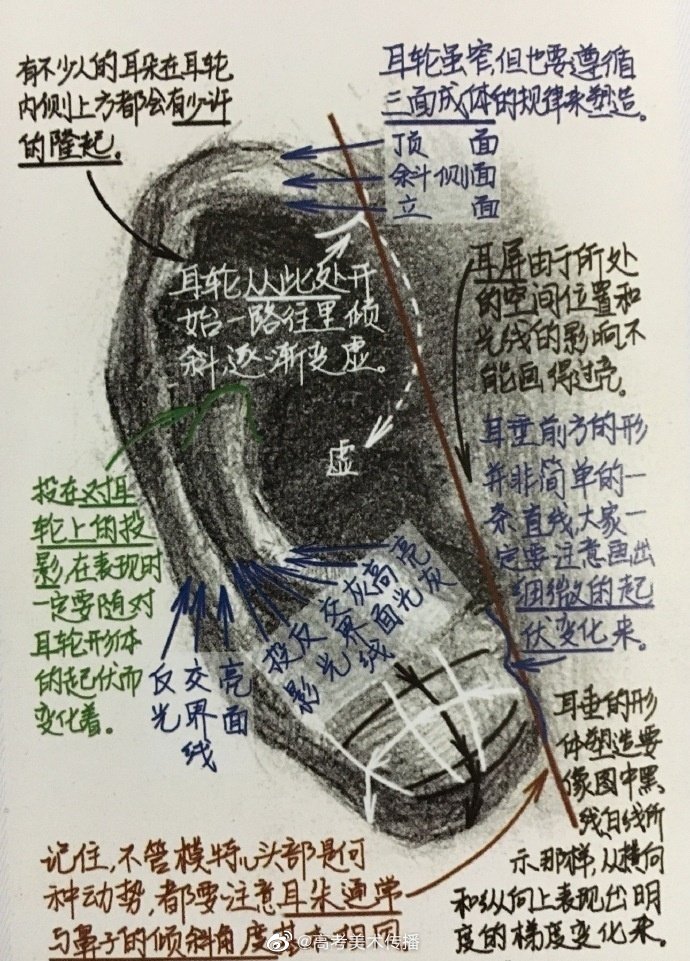 有不少人的耳朵在耳轮
内侧上方都会有少许
的隆起。
耳轮虽窄,但也要遵循
三面成体的规律来塑造。
顶 面
斜侧面
立 面
耳轮从此处开
始一路往里倾
斜,逐渐变虚。
虚
耳屏由于所处
的空间位置和
光线的影响不
能画得过亮。
耳垂前方的形
并非简单的一
条直线,大家一
定要注意画出
细微的起
伏变化来。
投在对耳
轮上的投
影,在表现时
一定要随对
耳轮形体
的起伏而
变化着。
反光
交界线
亮面
投影
反光
交界线
灰面
高光
亮灰
耳垂的形
体塑造要
像图中黑
线白线所
示那样,从横向
和纵向上表现出明
度的梯度变化来。
记住,不管模特儿头部是何
种动势,都要注意耳朵通常
与鼻子的倾斜角度
@高考美术传播